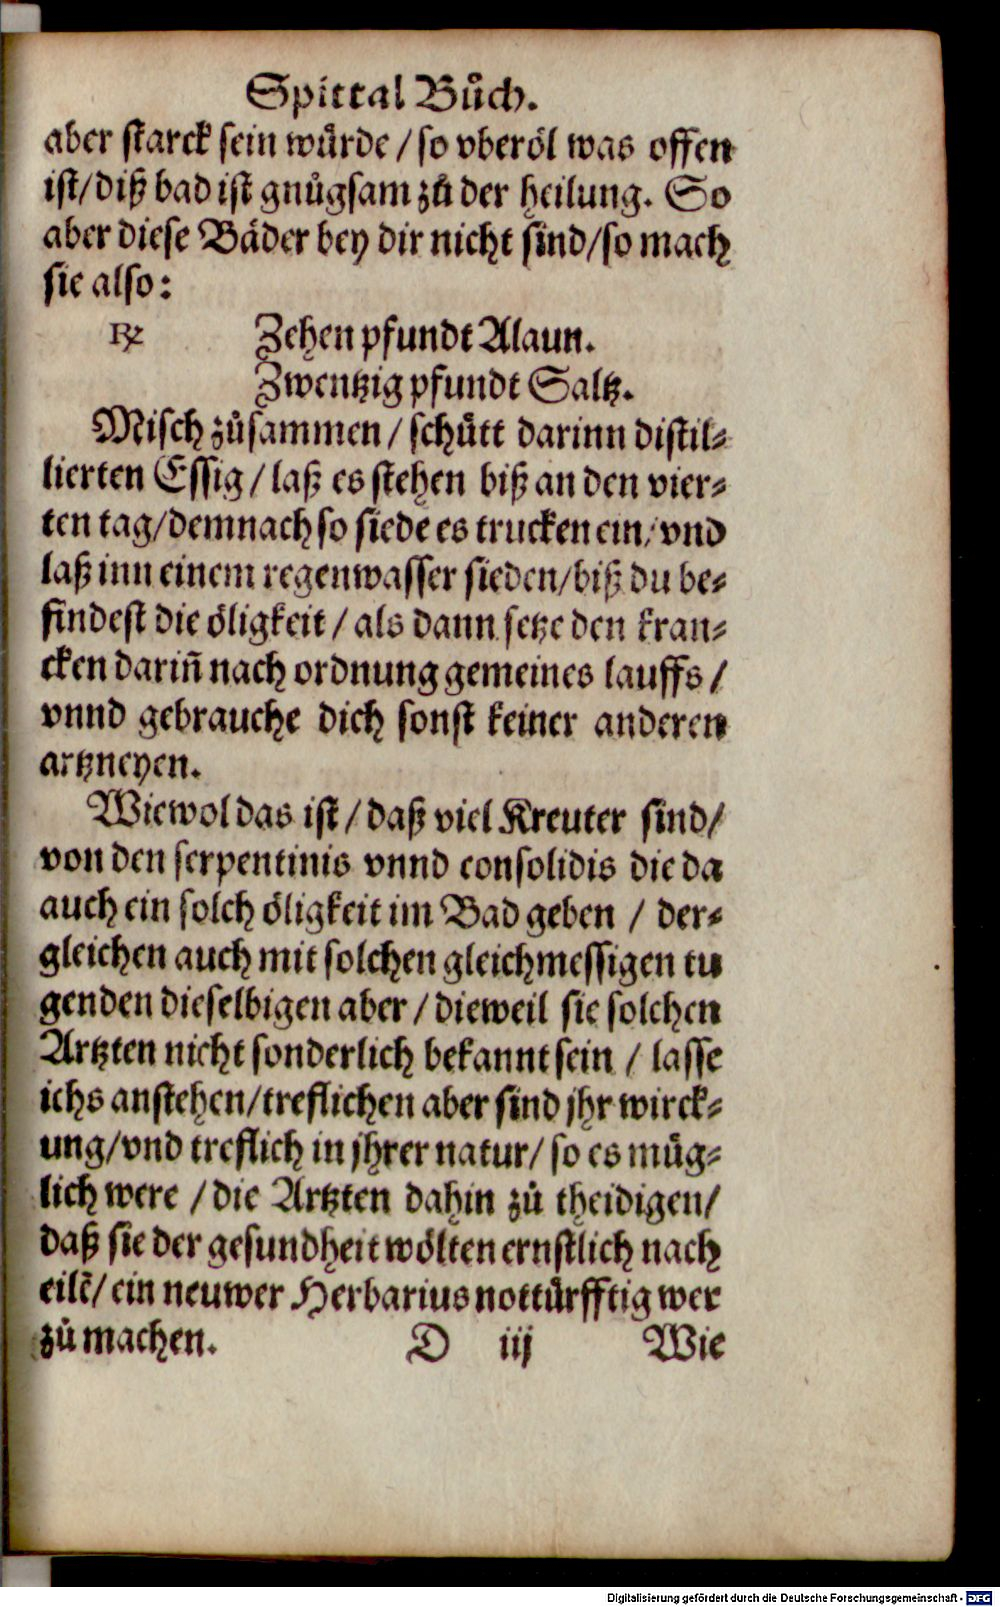 Spittal Bůch.
aber starck sein wuͤrde / so vberöl was offen
ist / diß bad ist gnuͤgsam zů der heilung. So
aber diese Bäder bey dir nicht sind / so mach
sie also:
℞ Zehen pfundt Alaun.
Zwentzig pfundt Saltz.
Misch zůsammen / schuͤtt darinn distil-
lierten Essig / laß es stehen biß an den vier-
ten tag / demnach so siede es trucken ein / vnd
laß inn einem regenwasser sieden / biß du be-
findest die öligkeit / als dann setze den kran-
cken dariñ nach ordnung gemeines lauffs /
vnnd gebrauche dich sonst keiner anderen
artzneyen.
Wiewol das ist / daß viel Kreuter sind /
von den serpentinis vnnd consolidis die da
auch ein solch öligkeit im Bad geben / der-
gleichen auch mit solchen gleichmessigen tu
genden dieselbigen aber / dieweil sie solchen
Artzten nicht sonderlich bekannt sein / lasse
ichs anstehen / treflichen aber sind jhr wirck-
ung / vnd treflich in jhrer natur / so es muͤg-
lich were / die Artzten dahin zů theidigen /
daß sie der gesundheit wölten ernstlich nach
eilẽ / ein neuwer Herbarius nottuͤrfftig wer
zů machen. D iij Wie
Digitalisierung gefördert durch die Deutsche Forschungsgemeinschaft - DFG